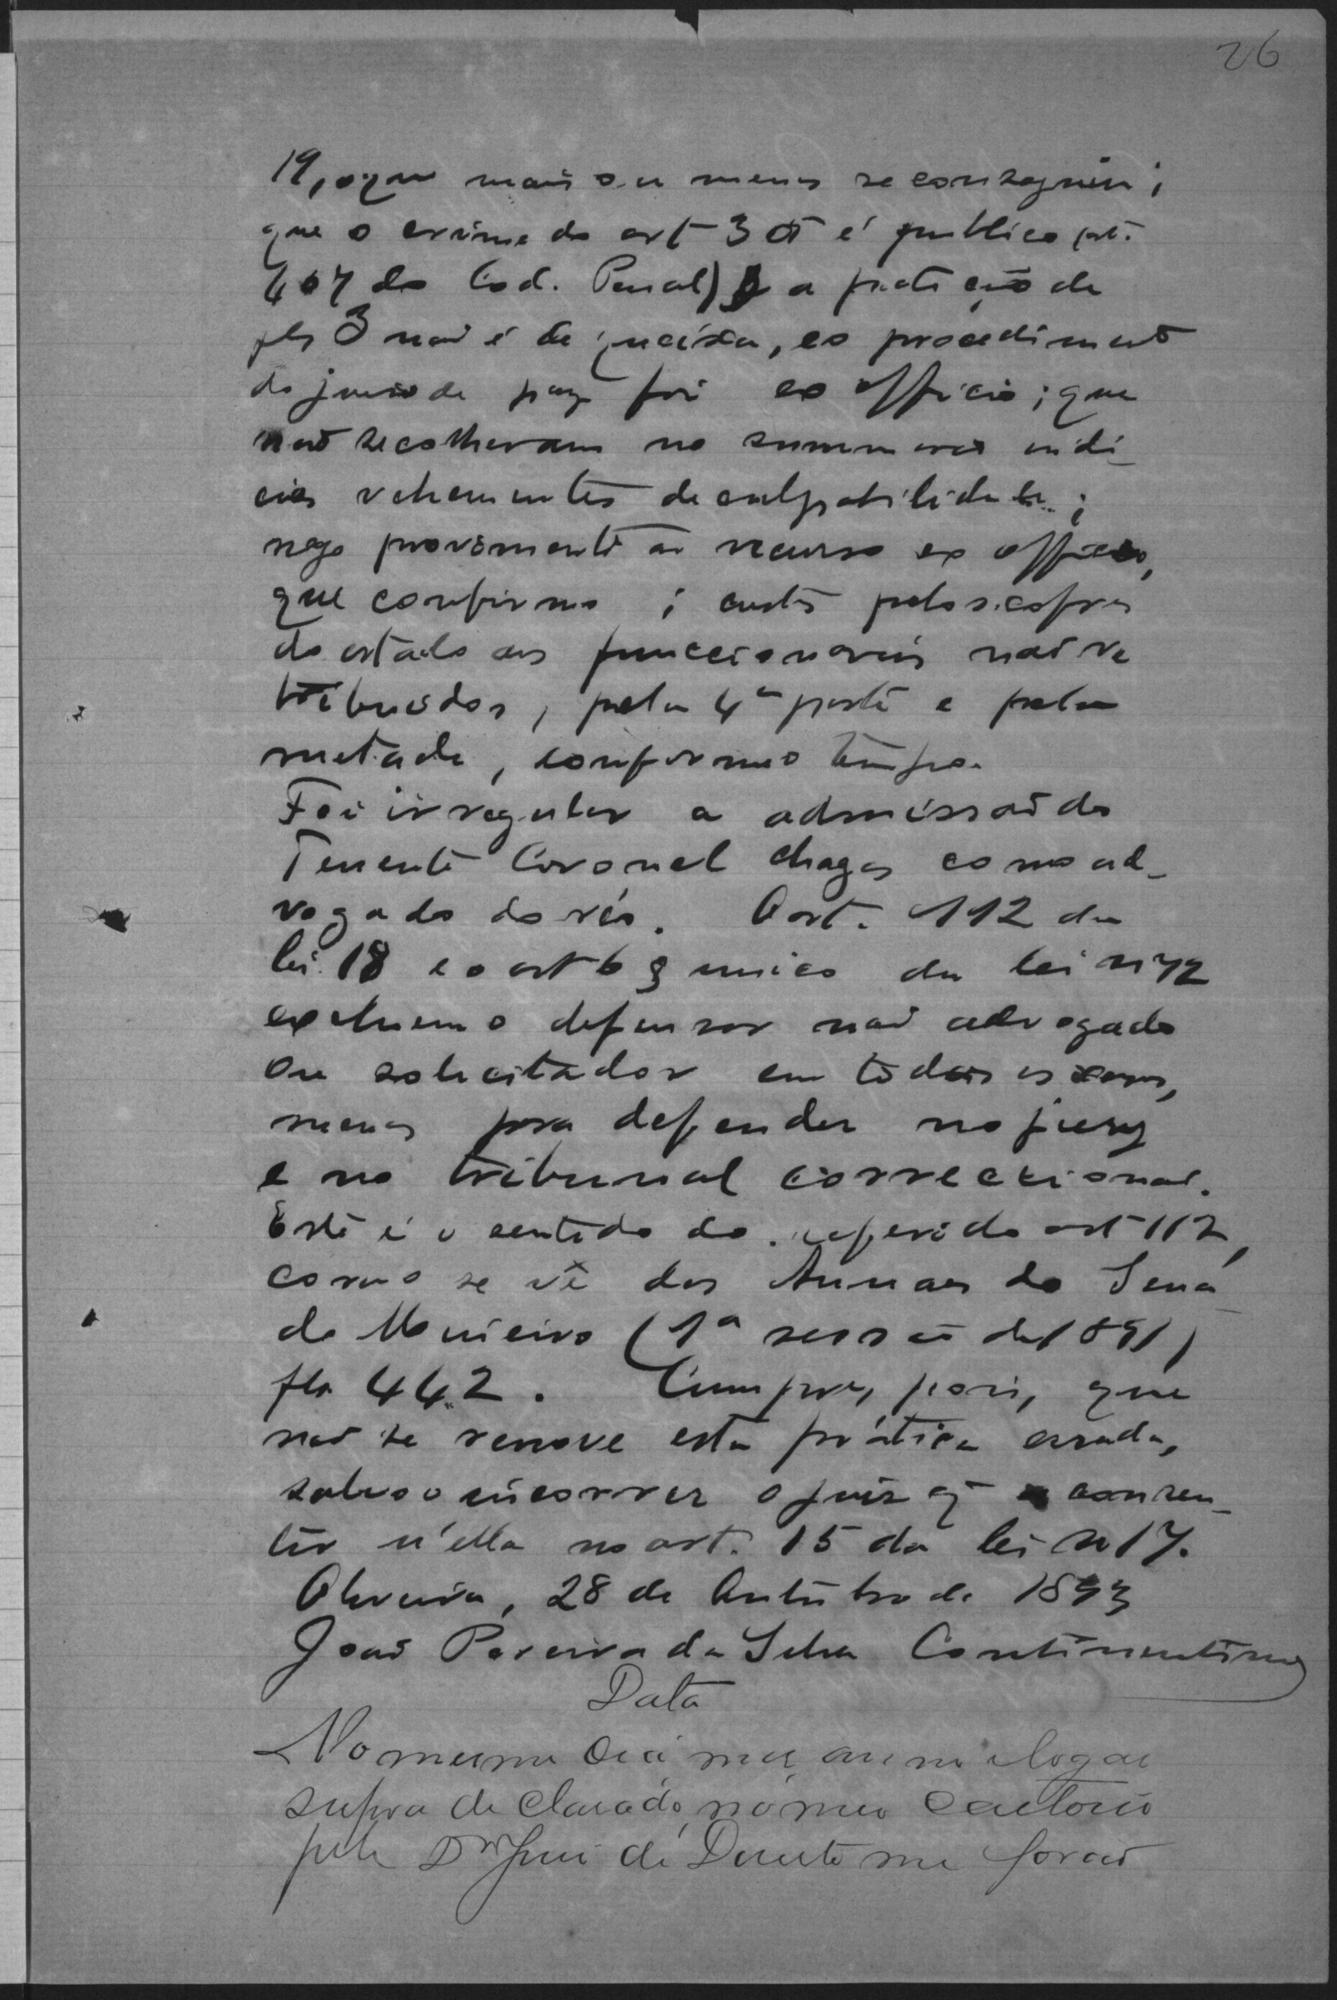 26
19, o que mais ou menos se conseguiu;
que o crime do art 303 é publico (art.
407 do Cod. Penal) a petição de
fls 3 não é de queixa, e o procedimento
do juiz de paz foi ex officio; que
não se colheram no summario indi-
cios vehementes de culpabilidade;
nego provimento ao recurso ex officio,
que confirmo; custas pelos cofres
do estado aos funccionarios não re
tribuidos, pela 4ª parte e pela
metade, conforme o tempo.
Foi irregular a admissão do
Tenente Coronel Chagas como ad-
vogado do réo. O art. 112 da
lei 18 e o art 6 § unico da lei n 72
excluem o defensor não advogado
ou solicitador em todos os casos,
menos para defender no jury
e no tribunal correccional.
Este é o sentido do referido art 112,
como se vê dos Annaes do Sena-
do Mineiro (1ª sessão de 1891)
fls 442. Cumpre, pois, que
não se renove esta prática errada,
sob o incorrer o juiz q consen-
tir n'ella no art. 15 da lei n 17.
Oliveira, 28 de Outubro de 1893
João Pereira da Silva Continentino
Data
No mesmo dia, mez, anno e logar
supra declarado, no meu cartorio
pelo Dr Juiz de Direito me forão